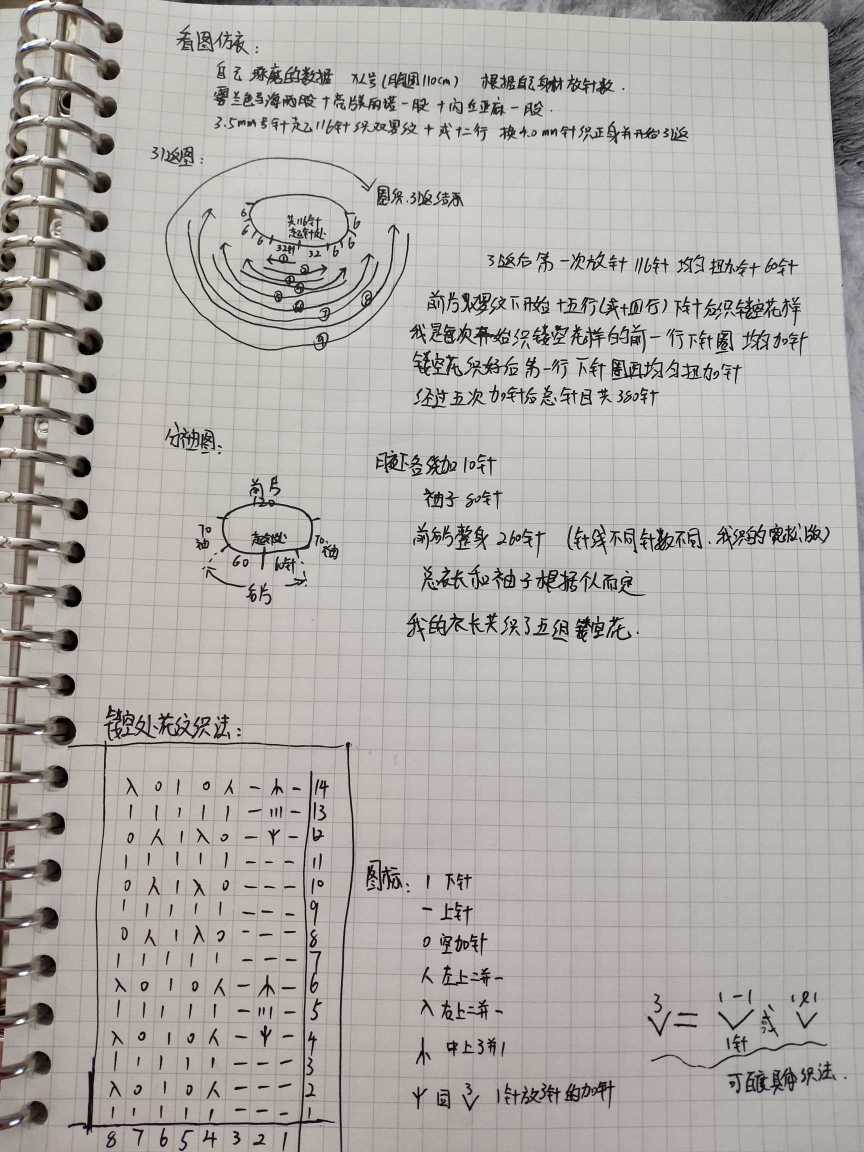 看图仿衣：
自己琢磨的数据 XL号(胸围110cm) 根据自己身材放针数.
雾兰色马海两股+亮片 一股+ 亚麻一股.
3.5mm号针起116针织双罗纹+或十二行 换4.0mm针织正身并开始引返
引返图：
圈织.引返结束
6 6 6 6 6 6 6 6
共116针
起针处
32针 32
① ② ③ ④ ⑤ ⑥ ⑦ ⑧ ⑨
引返后第一次放针116针 均匀扭加针+60针
前片双罗纹下开始十五行(或十四行)下针后织镂空花样
我是每次开始织镂空花样的前一行下针圈 均匀加针
镂空花织好后第一行下针圈再均匀扭加针
经过五次加针后总针目共380针
分袖图：
前片
120
70
袖
起针处
70
袖
60 60针
后片
腋下各绕加10针
袖子80针
前后整身260针 (针线不同针数不同.我织的宽松版)
总衣长和袖子根据个人而定
我的衣长共织了五组镂空花.
镂空处花纹织法：
入 0 1 0 人 — 木 — 14
1 1 1 1 1 — 111 — 13
0 人 1 入 0 — Ψ — 12
1 1 1 1 1 — — — 11
0 人 1 入 0 — — — 10
1 1 1 1 1 — — — 9
0 人 1 入 0 — — — 8
1 1 1 1 1 — — — 7
入 0 1 0 人 — 木 — 6
1 1 1 1 1 — 111 — 5
入 0 1 0 人 — Ψ — 4
1 1 1 1 1 — — — 3
入 0 1 0 人 — — — 2
1 1 1 1 1 — — — 1
8 7 6 5 4 3 2 1
图标：1 下针
— 上针
0 空加针
人 左上二并一
入 右上二并一
木 中上3并1
Ψ 回 3 V 1针放3针的加针
3 V = 1 — 1 V 或 1 0 1 V
1针
可百度具体织法.